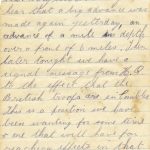 hear that a big advance was
made again yesterday, an
advance of a mile in depth
over a front of 6 miles. I am
later tonight we have a
signal message from H.Q
to the effect that the
British troops are
This in a position we have
wanting for some time
one that will have far
reaching effects in that